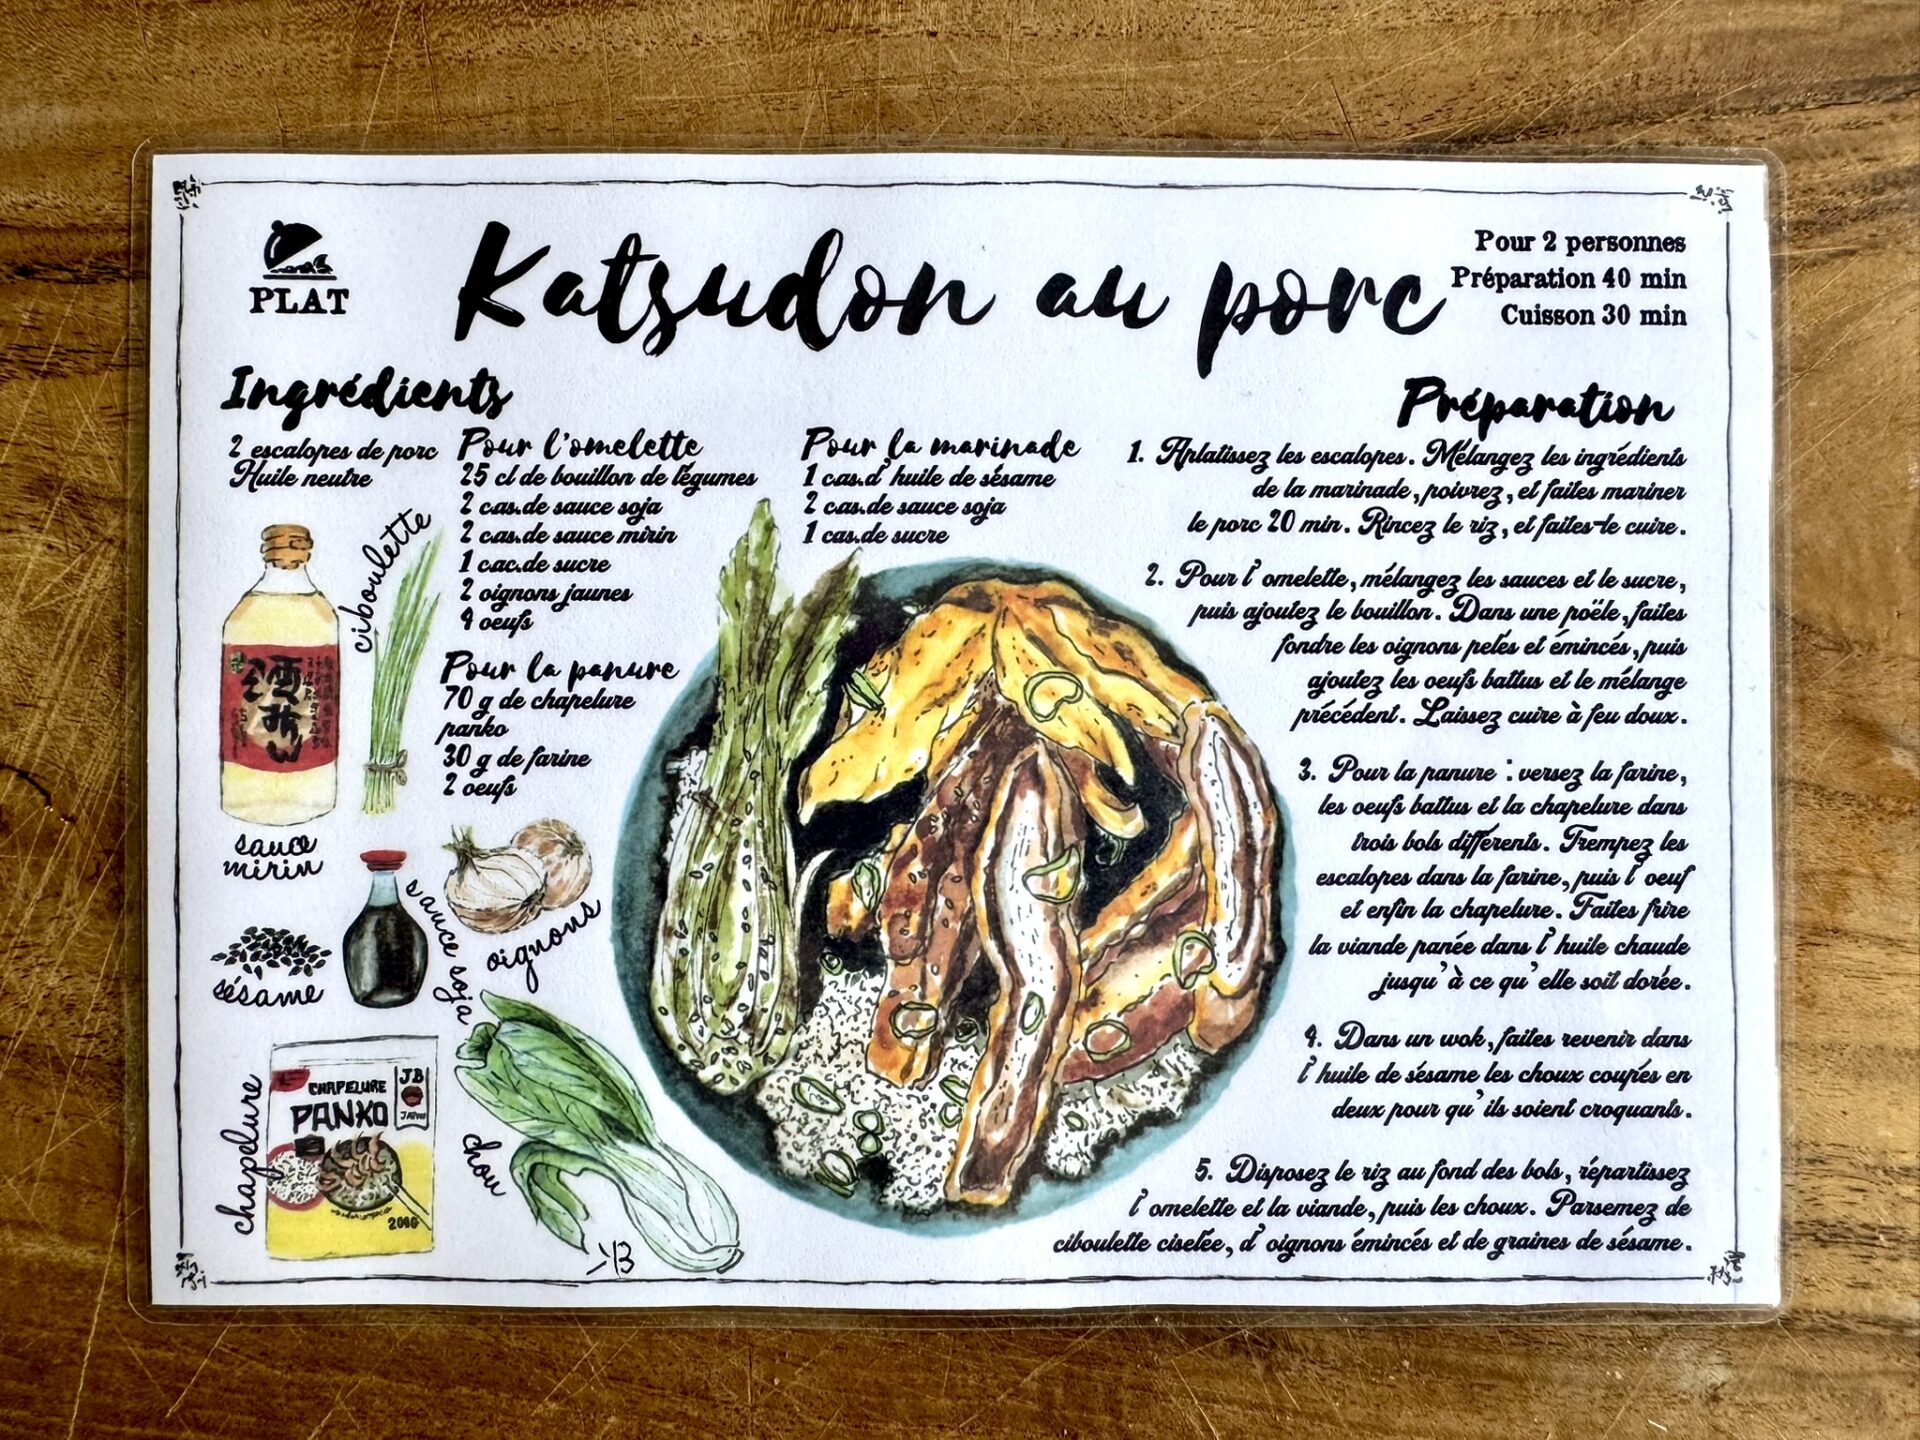 PLAT
Katsudon au porc
Pour 2 personnes
Préparation 40 min
Cuisson 30 min
Ingrédients
2 escalopes de porc
Huile neutre
Pour l'omelette
25 cl de bouillon de légumes
2 cas.de sauce soja
2 cas.de sauce mirin
1 cac.de sucre
2 oignons jaunes
4 oeufs
Pour la panure
70 g de chapelure
panko
30 g de farine
2 oeufs
Pour la marinade
1 cas.d'huile de sésame
2 cas.de sauce soja
1 cas.de sucre
ciboulette
sauce
mirin
sauce soja
oignons
sésame
chapelure
CHAPELURE
PANKO
JB
JAPON
200G
chou
JB
Préparation
1. Aplatissez les escalopes. Mélangez les ingrédients
de la marinade, poivrez, et faites mariner
le porc 20 min. Rincez le riz, et faites-le cuire.
2. Pour l'omelette, mélangez les sauces et le sucre,
puis ajoutez le bouillon. Dans une poële, faites
fondre les oignons pelés et émincés, puis
ajoutez les oeufs battus et le mélange
précédent. Laissez cuire à feu doux.
3. Pour la panure : versez la farine,
les oeufs battus et la chapelure dans
trois bols différents. Trempez les
escalopes dans la farine, puis l'oeuf
et enfin la chapelure. Faites frire
la viande panée dans l'huile chaude
jusqu'à ce qu'elle soit dorée.
4. Dans un wok, faites revenir dans
l'huile de sésame les choux coupés en
deux pour qu'ils soient croquants.
5. Disposez le riz au fond des bols, répartissez
l'omelette et la viande, puis les choux. Parsemez de
ciboulette ciselée, d'oignons émincés et de graines de sésame.